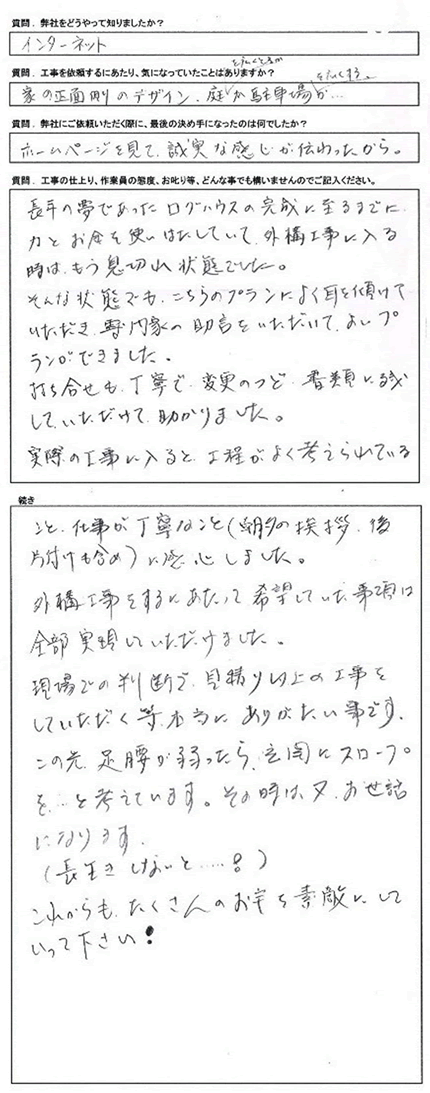 質問．弊社をどうやって知りましたか？
インターネット
質問．工事を依頼するにあたり、気になっていたことはありますか？
家の正面側のデザイン．庭が駐車場が…
質問．弊社にご依頼いただく際に、最後の決め手になったのは何でしたか？
ホームページを見て、誠実な感じが伝わったから。
質問．工事の仕上り、作業員の態度、お叱り等、どんな事でも構いませんのでご記入ください。
長年の夢であったログハウスの完成に至るまでに、
力とお金を使いはたしていて、外構工事に入る
時は、もう息切れ状態でした。
そんな状態でも、こちらのプランによく耳を傾けて
いただき、専門家の助言をいただいて、よいプ
ランができました。
打ち合せも、丁寧で、変更のつど、書類に残
していただけて、助かりました。
実際の工事に入ると、工程がよく考えられている
続き
こと、仕事が丁寧なこと（朝夕の挨拶、後
片付けも含め）に感心しました。
外構工事をするにあたって希望していた事項は
全部実現していただけました。
現場での判断で、見積り以上の工事を
していただく等、本当にありがたい事です。
この先、足腰が弱ったら、玄関にスロープ
を…と考えています。その時は、又、お世話
になります。
（長生きしないと……！）
これからも、たくさんのお宅を素敵にして
いって下さい！